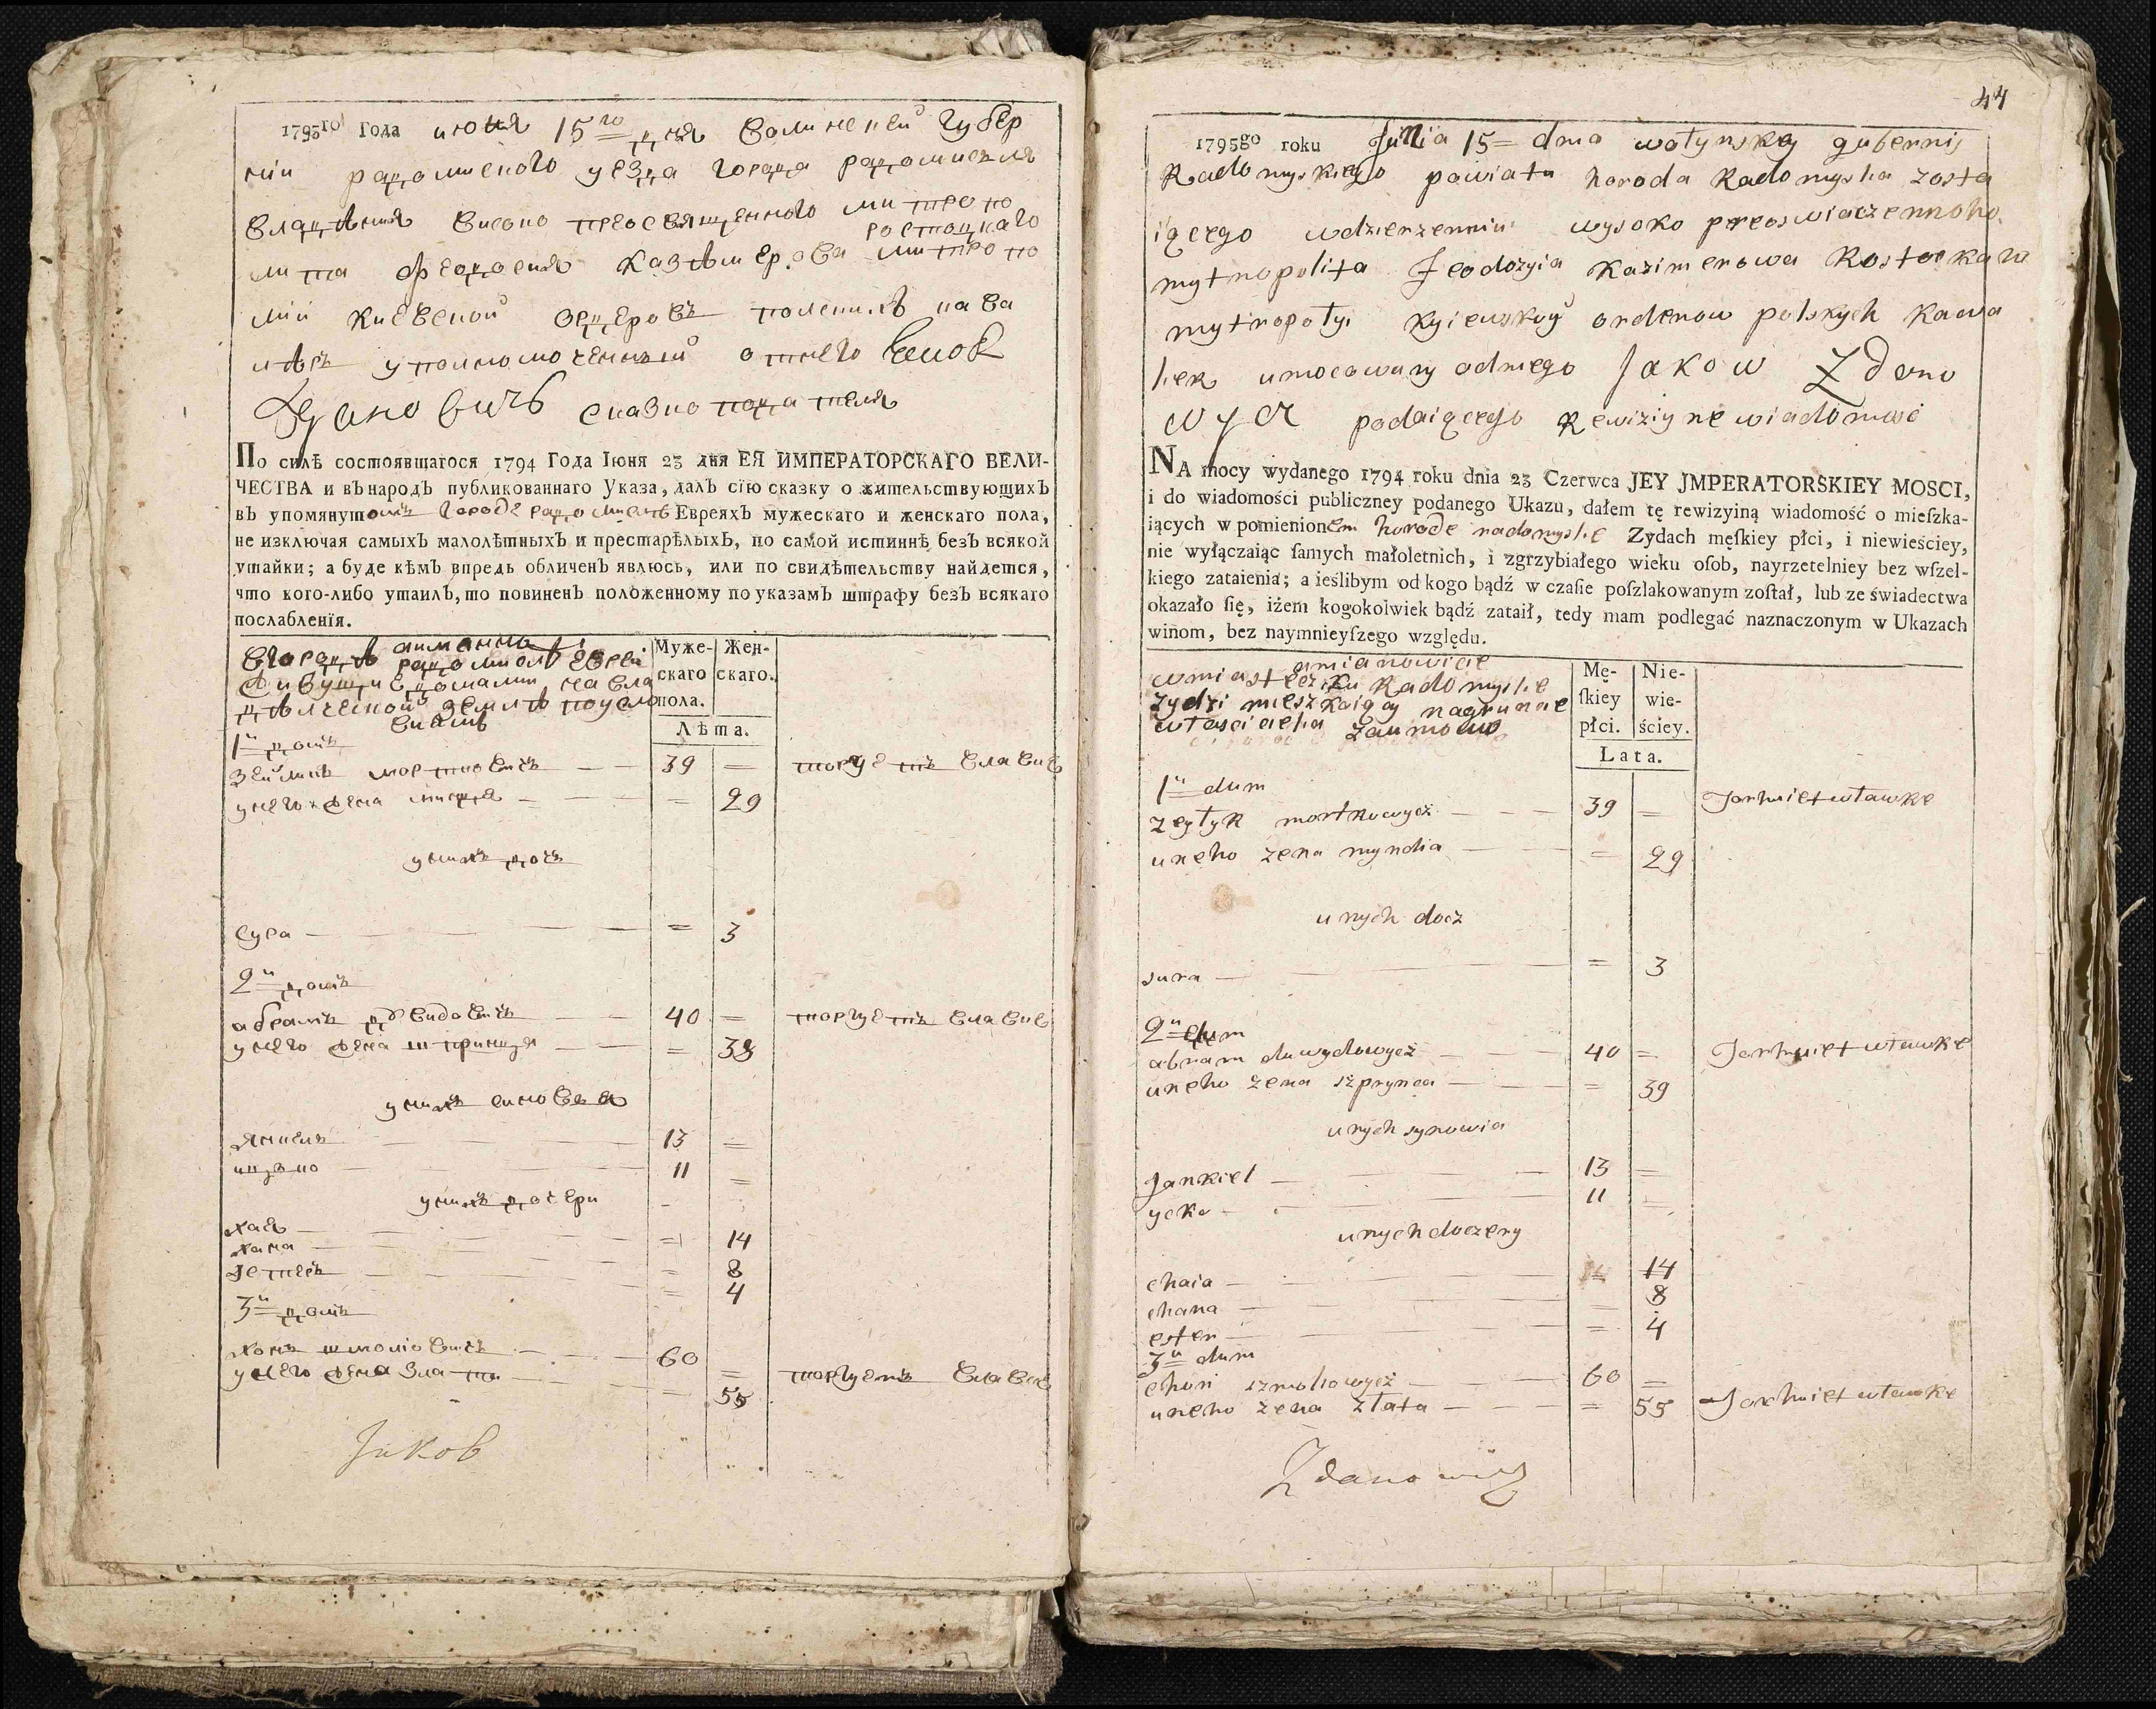 1795го Года июня 15го дня Волинской губер
нии радомиского уезда города радомисля
владѣния високо преосвященного митропо
лита феодосия Казѣмерова ростоцкаго митропо
лии Киевской ордеровъ полскихъ кава
лѣръ уполномоченний отнего Яков
Зданович сказко подателя
По силѣ состоявшагося 1794 Года Іюня 23 дня ЕЯ ИМПЕРАТОРСКАГО ВЕЛИ-
ЧЕСТВА и въ народъ публикованнаго Указа, далъ сїю сказку о жительствующихъ
въ упомянутомъ городе радомисле Евреяхъ мужескаго и женскаго пола,
не изключая самыхъ малолѣтныхъ и престарѣлыхъ, по самой истиннѣ безъ всякой
утайки; а буде кѣмъ впредь обличенъ явлюсь, или по свидѣтельству найдется,
что кого-либо утаилъ, то повиненъ положенному по указамъ штрафу безъ всякаго
послабленїя.
Муже-
скаго
пола.
Жен-
скаго.
Лѣта.
аимянно
вгородѣ радомислѣ евреи
живущие домами на вла
дѣлческой землѣ
1й домъ
зейликъ мортковичъ 39 = торгуетъ влавке
унего жена миндя = 29
унихъ дочъ
сура = 3
2й домъ
абрамъ давидовичъ 40 = торгуетъ влавке
унего жена шпринця = 39
унихъ синовья
янкель 13 =
ицко 11 =
унихъ дочери
хая = 14
хана = 8
естеръ = 4
3й домъ
хонъ шмолiовичъ 60 =
унего жена злата = 55 торгуетъ влавке
Jakob
44
1795go roku Junia 15= dnia wołynskey gubernij
Radomyskiego powiatu horoda Radomysla zosta
iącego wdzierzenniu wysoko preoswiaczennoho
mytropolita Feodozyia Kazimerowa Rostockaho
mytropoly. Kyiewskoy orderow polskych Kawa
ler umocowany odniego Jakow Zdano
wycz podaiącego Rewizyine wiadomosc
NA mocy wydanego 1794 roku dnia 23 Czerwca JEY JMPERATORSKIEY MOSCI,
i do wiadomości publiczney podanego Ukazu, dałem tę rewizyiną wiadomość o mieſzka-
iących w pomienionem horode radomysle Zydach męſkiey płci, i niewieściey,
nie wyłączaiąc ſamych małoletnich, i zgrzybiałego wieku oſob, nayrzetelniey bez wſzel-
kiego zataienia; a ieślibym od kogo bądź w czaſie poſzlakowanym zoſtał, lub ze świadectwa
okazało ſię, iżem kogokolwiek bądź zataił, tedy mam podlegać naznaczonym w Ukazach
winom, bez naymnieyſzego względu.
Mę-
ſkiey
płci.
Nie-
wie-
ściey.
Lata.
amianowicie
wmiasteczku Radomyslie
zydzi mieszkaiący nagruncie
własciciela
1й dum
zeylyk mortkowycz 39 = Torhuiet wławke
uneho zena myndia = 29
unych docz
sura = 3
2й dum
abram duwydowycz 40 = Torhuiet wławke
uneho zena szprynca = 39
unych synowia
Jankiel 13 =
ycko 11 =
unych doczery
chaia = 14
chana = 8
ester = 4
3й dum
chon szmoliowycz 60 =
uneho zena złata = 55 Torhuiet wławke
Zdanowicz